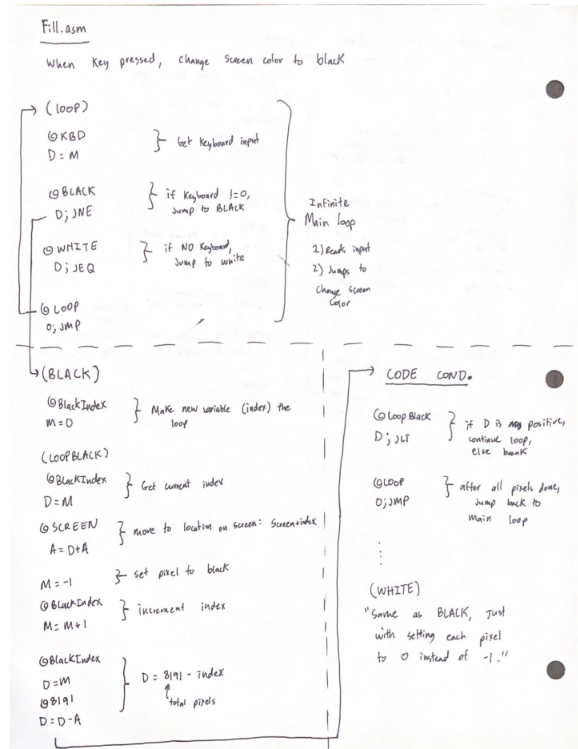 Fill.asm
When key pressed, change screen color to black
(LOOP)
@KBD
D=M
} Get keyboard input
@BLACK
D; JNE
} if keyboard !=0,
Jump to BLACK
@WHITE
D; JEQ
} if NO keyboard,
Jump to white
@LOOP
0; JMP
Infinite
Main loop
1) Reads input
2) Jumps to
change screen
color
(BLACK)
@BlackIndex
M=0
} Make new variable (index) the
loop
(LOOPBLACK)
@BlackIndex
D=M
} Get current index
@SCREEN
A=D+A
} move to location on screen: Screen+index
M=-1
} set pixel to black
@BlackIndex
M=M+1
} increment index
@BlackIndex
D=M
@8191
D=D-A
} D = 8191 - index
↑
total pixels
CODE COND.
@LoopBlack
D; JLT
} if D is positive,
continue loop,
else break
@LOOP
0; JMP
} after all pixels done,
Jump back to
main loop
....
(WHITE)
"Same as BLACK, just
with setting each pixel
to 0 instead of -1."